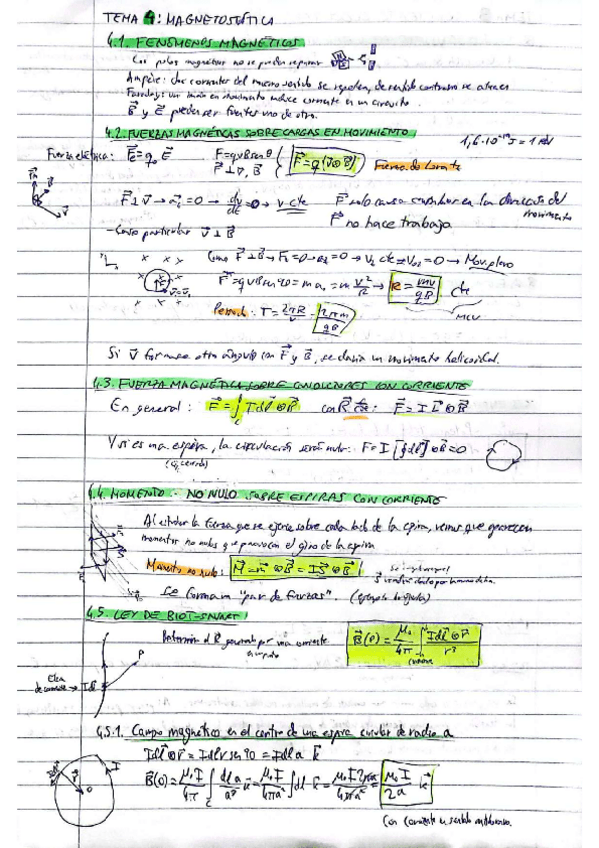 TEMA 4: MAGNETOSTÁTICA
4.1. FENÓMENOS MAGNÉTICOS
Los polos magnéticos no se pueden separar
Ampère: dos corrientes del mismo sentido se repelen, de sentido contrario se atraen
Faraday: un imán en movimiento induce corriente en un circuito.
B⃗ y E⃗ pueden ser fuentes uno de otro.
4.2. FUERZAS MAGNÉTICAS SOBRE CARGAS EN MOVIMIENTO
1,6·10⁻¹⁹ J = 1 eV
Fuerza eléctrica: F⃗e = q₀ E⃗ F = qvB senθ F⃗ = q(v⃗ ⊗ B⃗) Fuerza de Lorentz
F⃗ ⊥ v⃗, B⃗
F⃗ ⊥ v⃗ → a⃗t = 0 → dv/dt = 0 → v cte F⃗ solo causa cambios en la dirección del movimiento
F⃗ no hace trabajo
- Caso particular v⃗ ⊥ B⃗
Como F⃗ ⊥ B⃗ → Fz = 0 → az = 0 → vz cte = v0z = 0 → Mov. plano
F = qvB sen 90 = m an = m v²/R → R = mv/qB cte
MCU
Periodo: T = 2πR/v = 2πm/qB
Si v⃗ formase otro ángulo con F⃗ y B⃗, se daría un movimiento helicoidal.
4.3. FUERZA MAGNÉTICA SOBRE CONDUCTORES CON CORRIENTE
En general: F⃗ = ∫ I dl⃗ ⊗ B⃗ con B⃗ cte: F⃗ = I L⃗ ⊗ B⃗
Y si es una espira, la circulación será nula: F = I [∮dl⃗] ⊗ B⃗ = 0
4.4. MOMENTO NO NULO SOBRE ESPIRAS CON CORRIENTE
Al estudiar la fuerza que se ejerce sobre cada lado de la espira, vemos que aparecen
momentos no nulos que provocan el giro de la espira
Momento no nulo: M⃗ = m⃗ ⊗ B⃗ = I S⃗ ⊗ B⃗
Se forma un "par de fuerzas". (ejemplo brújula)
4.5. LEY DE BIOT-SAVART
Determina el B⃗ generado por una corriente
B⃗(0) = μ₀/4π ∫ I dl⃗ ⊗ r⃗ / r³
P
Elem. de corriente → I dl⃗
4.5.1. Campo magnético en el centro de una espira circular de radio a
I dl⃗ ⊗ r⃗ = I dl r sen 90 = I dl a k⃗
B⃗(0) = μ₀I/4π ∫ dl a/a³ k⃗ = μ₀I/4πa² ∫ dl k⃗ = μ₀I 2πa/4πa² = μ₀I/2a k⃗
Con corriente en sentido antihorario.